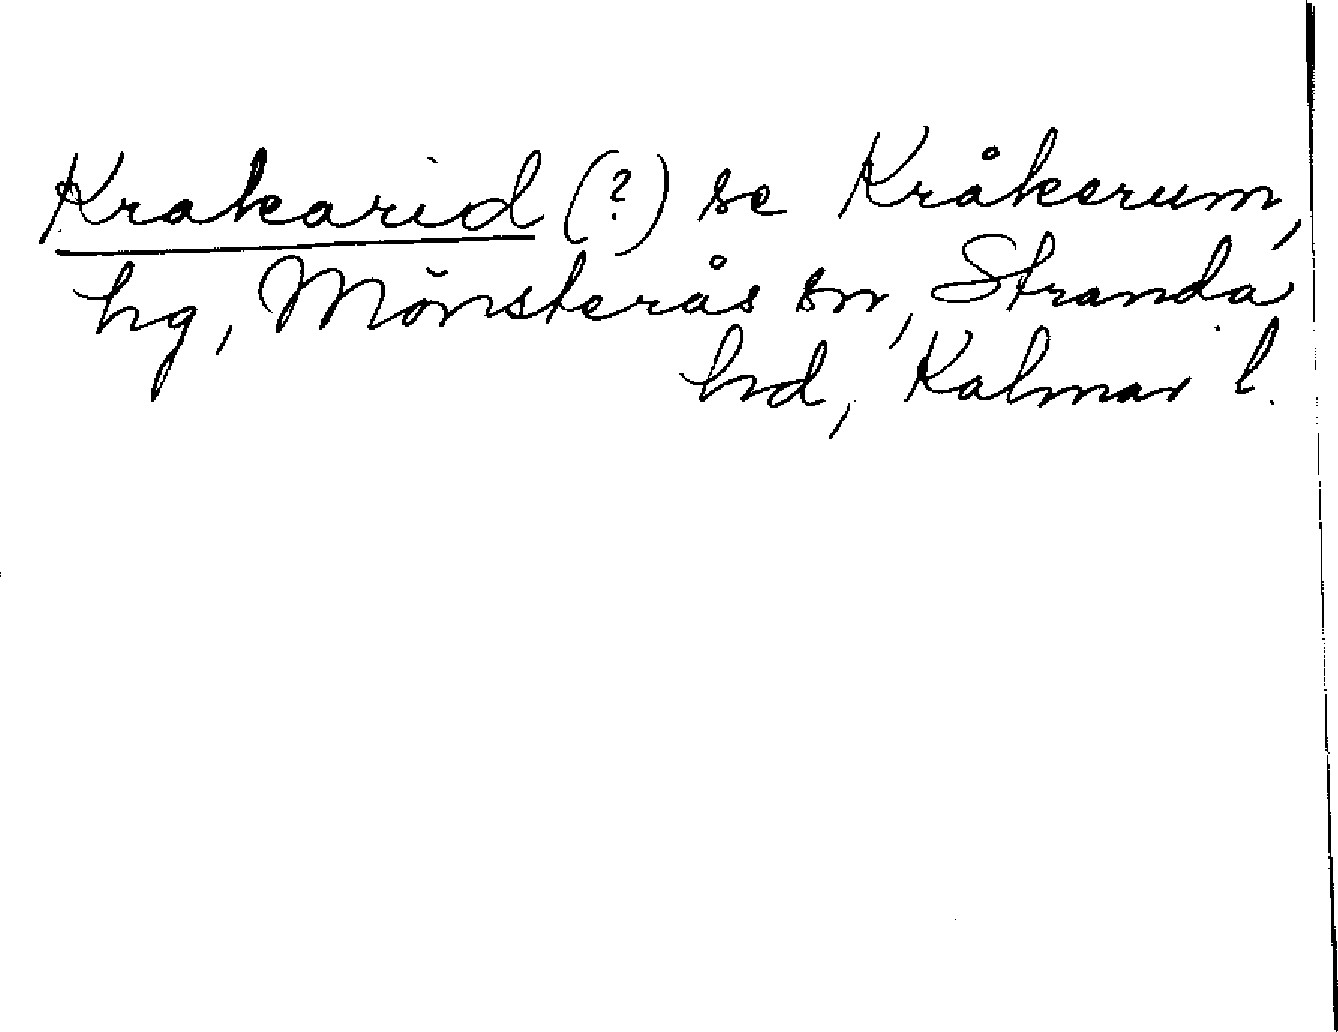 Krakarid (?) se Kråkerum,
hg, Mönsterås sn, Stranda
hd, Kalmar l.